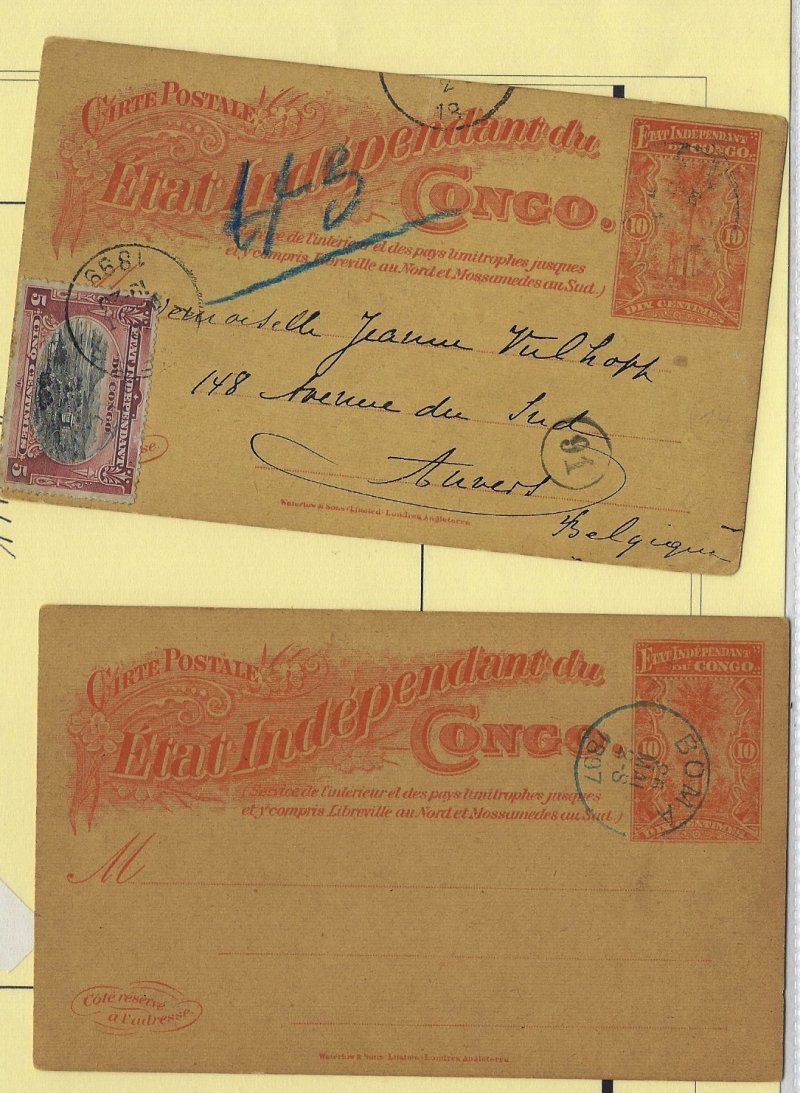 CARTE POSTALE
État Indépendant du
CONGO.
(Service de l'interieur et des pays limitrophes jusques
et y compris Libreville au Nord et Mossamedes au Sud.)
ETAT INDÉPENDANT
DU CONGO.
10 10
DIX CENTIMES
2
13
45
1899
ETAT INDÉPENDANT
DU CONGO
5 5
CINQ CENTIMES
Jeanne Vulhopp
148 Avenue du Sud
91
Anvers
Belgique
Waterlow & Sons Limited Londres Angleterre
CARTE POSTALE
État Indépendant du
CONGO
(Service de l'interieur et des pays limitrophes jusques
et y compris Libreville au Nord et Mossamedes au Sud.)
ETAT INDÉPENDANT
DU CONGO.
10 10
DIX CENTIMES
BOMA
MAI
1897
M
Côté réservé
à l'adresse.
Waterlow & Sons Limited Londres Angleterre